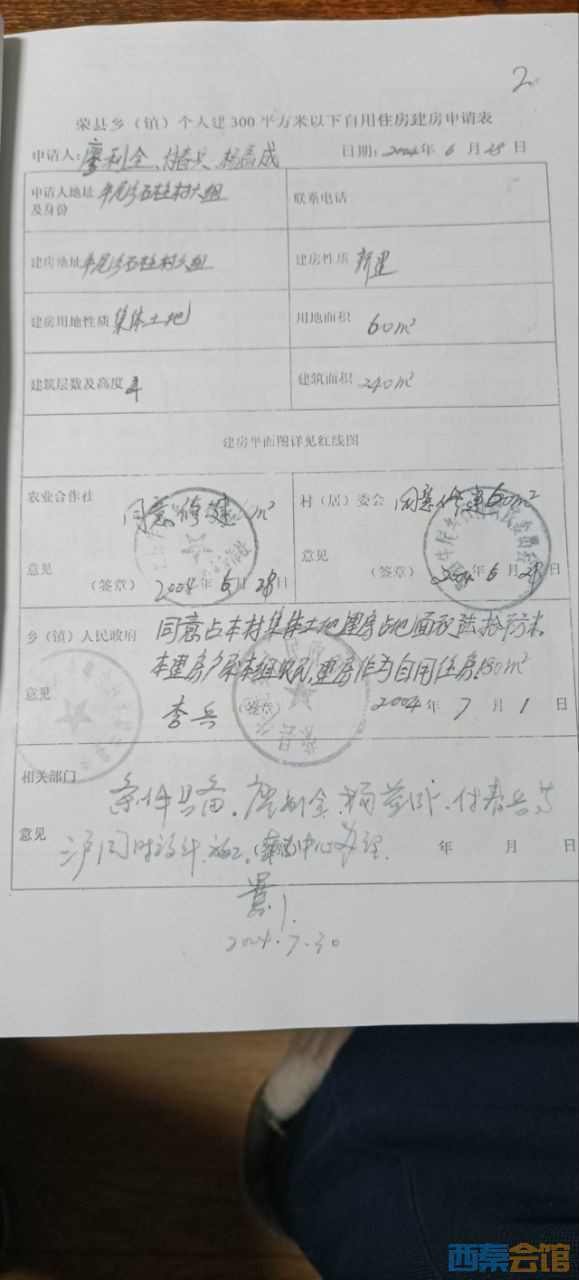 2
荣县乡（镇）个人建300平方米以下自用住房建房申请表
申请人：廖利全、付春兵、杨 成 日期：2004年6月28日
申请人地址及身份 石柱村六组 联系电话
建房地址 石柱村六组 建房性质 新建
建房用地性质 集体土地 用地面积 60m²
建筑层数及高度 4 建筑面积 240m²
建房平面图详见红线图
农业合作社 同意修建 m² 村（居）委会 同意修建60m²
意见 意见
（签章） 2004年6月28日 （签章） 2004年6月28日
乡（镇）人民政府 同意占本村集体土地建房占地面积陆拾平方米。
本建房户系本组农民，建房作为自用住房 m²
意见 李兵 （签章） 2004年7月1日
相关部门 条件具备。廖利全、杨 、付春兵等
意见 三户同时设计、施工。 中心办理。 年 月 日
2004.7.30
西秦会馆